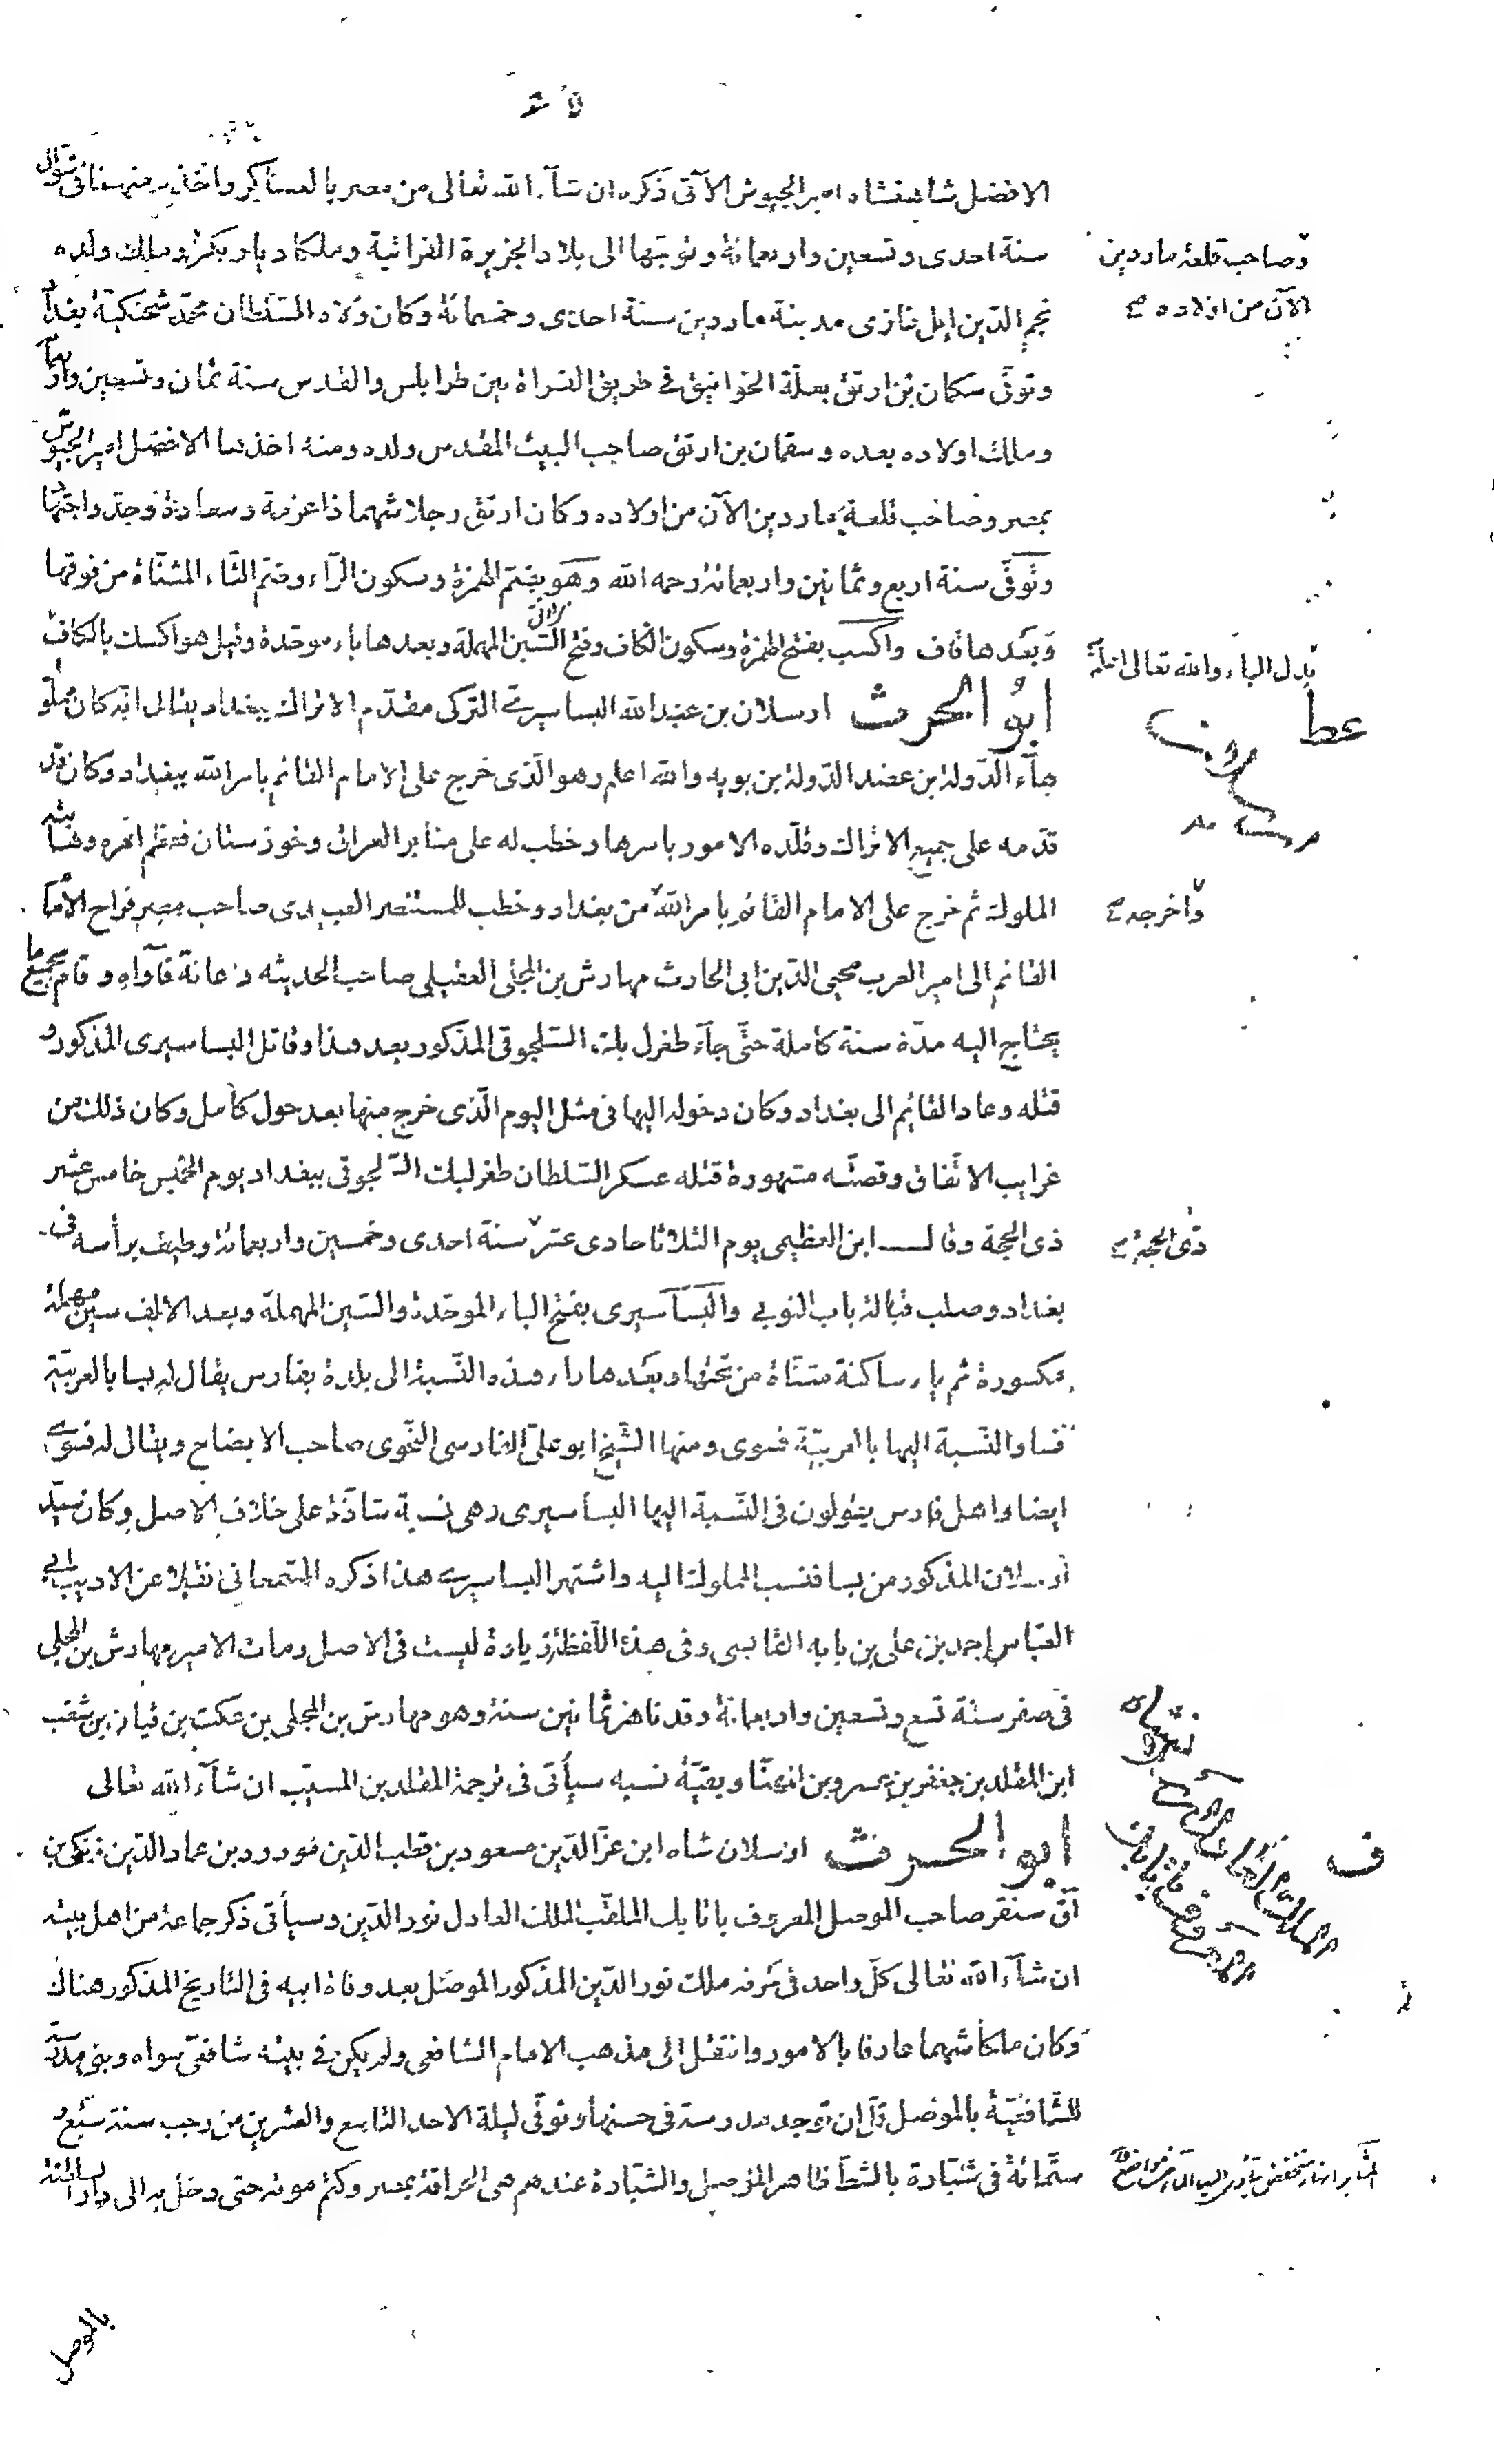 الافضل شاهنشاه امير الجيوش الآتى ذكره ان شآء الله تعالى من مصر بالعساكر واخذه منهما فى شوال
سنة احدى وتسعين واربعمائة وتوجها الى بلاد الجزيرة الفراتية وملكا ديار بكر وملك ولده
وصاحب قلعة ماردين
الآن من اولاده صح
نجم الدّين ايل غازى مدينة ماردين سنة احدى وخمسمائة وكان ولاه السّلطان محمّد شحنكية بغداد
وتوفّى سكمان بن ارتق بعلّة الخوانيق فى طريق الفراة بين طرابلس والقدس سنة ثمان وتسعين واربعمآ
وملك اولاده بعده وسقمان بن ارتق صاحب البيت المقدس ولده ومنه اخذها الافضل امير الجيوش
بمصر وصاحب قلعة ماردين الآن من اولاده وكان ارتق رجلا شهما ذا عزمة وسعادة وجدّ واجتهاد
وتوفّى سنة اربع وثمانين واربعمائة رحمه الله وهو بضم الهمزة وسكون الرّآء وضم التّاء المثنّاة من فوقها
وبعدها قاف واكسب بفتح الهمزة وسكون الكاف وفتح السّين المهملة وبعدها باء موحّدة وقيل هو اكسك بالكاف
بدل الباء والله تعالى اعلم
ابو الحرث ارسلان بن عبد الله البساسيرى التركى مقدّم الاتراك ببغداد يقال انّه كان مملو
عط
بهآء الدّولة بن عضد الدّولة بن بويه والله اعلم وهو الّذى خرج على الامام القائم بامر الله ببغداد وكان قد
ارسلان
قدّمه على جميع الاتراك وقلّده الامور باسرها وخطب له على منابر العراق وخوزستان فعظم امره وهابته
الملوك ثم خرج على الامام القائم بامر الله من بغداد وخطب للمستنصر العبيدى صاحب مصر فراح الامام
واخرجه صح
القائم الى امير العرب محيى الدّين ابى الحارث مهارش بن المجلى العقيلى صاحب الحديثه وعانة فآواه وقام بجميع ما
يحتاج اليه مدّة سنة كاملة حتّى جآء طغرل بك السّلجوقى المذكور بعد هذا وقاتل البساسيرى المذكور و
قتله وعاد القائم الى بغداد وكان دخوله اليها فى مثل اليوم الّذى خرج منها بعد حول كامل وكان ذلك من
غرايب الاتّفاق وقصّته مشهورة قتله عسكر السّلطان طغرلبك السّلجوقى ببغداد يوم الخميس خامس عشر
ذى الحجة وقال ابن العظيمى يوم الثلاثا حادى عشر سنة احدى وخمسين واربعمائة وطيف برأسه فى
ذى الحجة صح
بغداد وصلب قبالة باب النوبى والبساسيرى بفتح الباء الموحّدة والسّين المهملة وبعد الالف سين مهملة
مكسورة ثم ياء ساكنة مثنّاة من تحتها وبعدها راء هذه النّسبة الى بلدة بفارس يقال لها بسا بالعربيّة
فسا والنّسبة اليها بالعربيّة فسوى ومنها الشّيخ ابو علىّ الفارسى النّحوى صاحب الايضاح ويقال له فسوى
ايضا واهل فارس يقولون فى النّسبة اليها البساسيرى وهى نسبة شاذّة على خلاف الاصل وكان سيّد
ارسلان المذكور من بسا فنسب المملوك اليه واشتهر البساسيرى هذا ذكره السّمعانى نقلا عن الاديب ابى
العبّاس احمد بن على بن بابه القابسى وفى هذه اللّفظة زيادة ليست فى الاصل ومات الامير مهارش بن المجلى
فى صفر سنة تسع وتسعين واربعمائة وقد ناهز ثمانين سنة وهو مهارش بن المجلى بن عكيث بن قيان بن شعب
ابن المقلد بن جعفر بن عمرو بن المهنّا وبقيّة نسبه سيأتى فى ترجمة المقلد بن المسيّب ان شآء الله تعالى
ابو الحرث ارسلان شاه ابن عزّ الدّين مسعود بن قطب الدّين مودود بن عماد الدّين زنكى بن
ف
آق سنقر صاحب الموصل المعروف باتابك الملقّب الملك العادل نور الدّين وسيأتى ذكر جماعة من اهل بيته
المعروف باتابك
ان شآء الله تعالى كلّ واحد فى حرفه ملك نور الدّين المذكور الموصل بعد وفاة ابيه فى التاريخ المذكور هناك
وكان ملكا شهما عارفا بالامور وانتقل الى مذهب الامام الشافعى ولم يكن فى بيته شافعىّ سواه وبنى مدرسة
للشّافعيّة بالموصل قلّ ان توجد مدرسة فى حسنها وتوفّى ليلة الاحد التاسع والعشرين من رجب سنة سبع و
ستّمائة فى شبّارة بالشطّ ظاهر الموصل والشبّارة عندهم هى الحراقة بمصر وكتم موته حتى دخل به الى دار السلطنة
بالموصل